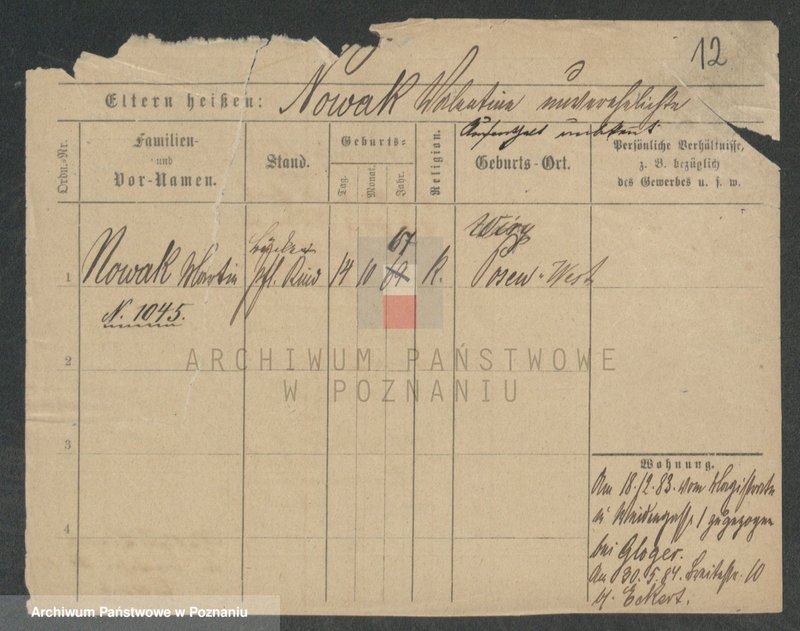 12
Eltern heißen: Nowak Valentine unverehelichte
Aufenthalt unbekannt
Ordn.-Nr.
Familien- und Vor-Namen.
Stand.
Geburts-
Tag.
Monat.
Jahr.
Religion.
Geburts-Ort.
Persönliche Verhältnisse,
z. B. bezüglich
des Gewerbes u. s. w.
1
Nowak Martin
Kind
14
10
67
K.
Posen-West
N. 1045.
ARCHIWUM PAŃSTWOWE
W POZNANIU
2
3
4
Wohnung.
Am 18./2.83. vom Magistrate
zugezogen
bei Gloger.
Am 30.5.84. Breitestr. 10
b. Eckert.
Archiwum Państwowe w Poznaniu